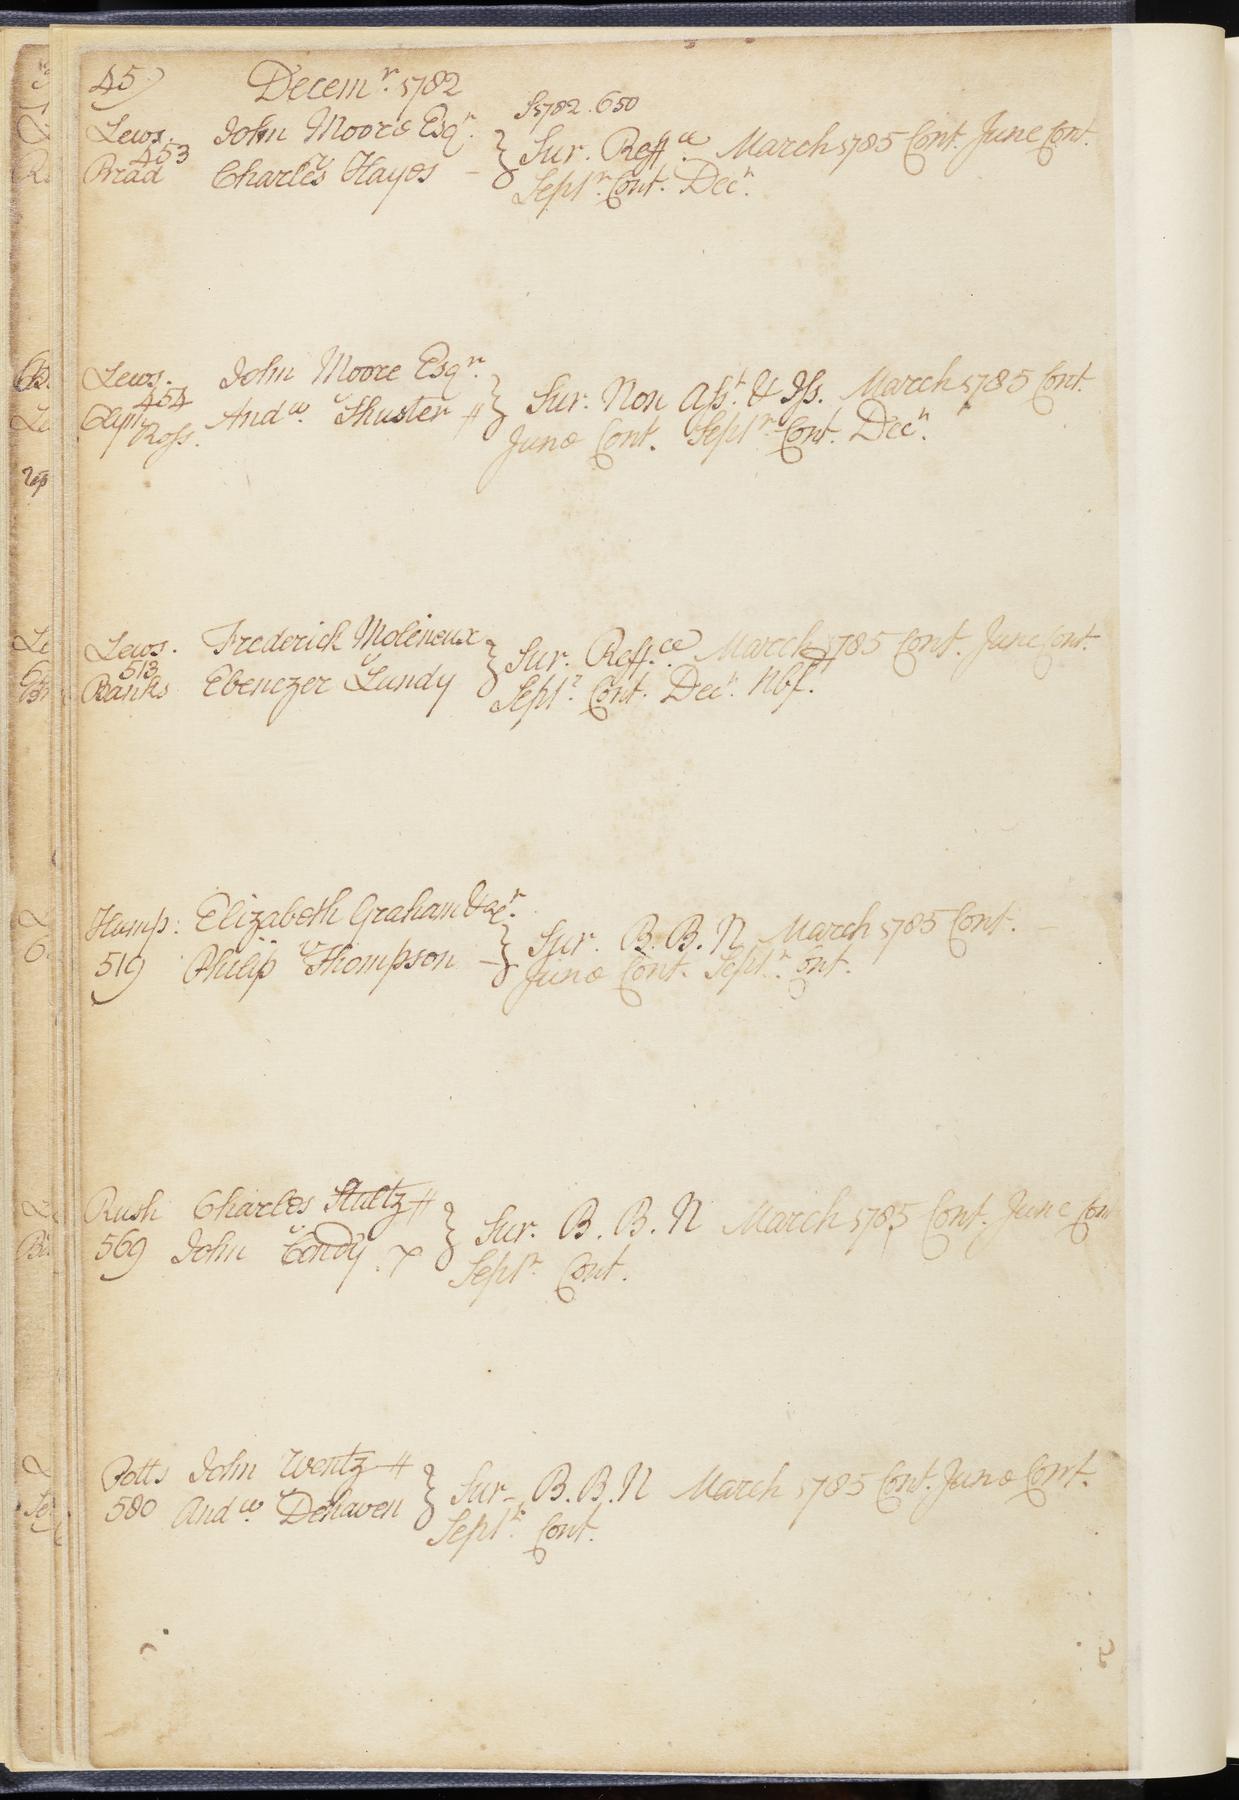 45) Decemr. 1782
S 1782. 650
Lews. John Moore Esqr.
453
Brad Charles Hayes - } Sur. Reffce March 1785 Cont. June Cont.
Septr. Cont. Decr.
Lews. John Moore Esqr.
454
Andw. Shuster # } Sur. Non Asst. & Iss. March 1785 Cont.
Ross.
June Cont. Septr. Cont. Decr.
Lews. Frederick Molineux
513
Banks Ebenezer Lundy } Sur. Reff.ce March 1785 Cont. June Cont.
Septr. Cont. Decr. Nbf.
Hump: Elizabeth Graham &ce.
519 Philip Thompson - } Sur. B. B. N March 1785 Cont.
June Cont. Septr. Cont.
Rush Charles Stultz #
569 John Condy x } Sur. B. B. N March 1785 Cont. June Cont
Septr. Cont.
Potts John Wentz #
580 Andw. Dehaven } Sur. B. B. N March 1785 Cont. June Cont.
Septr. Cont.